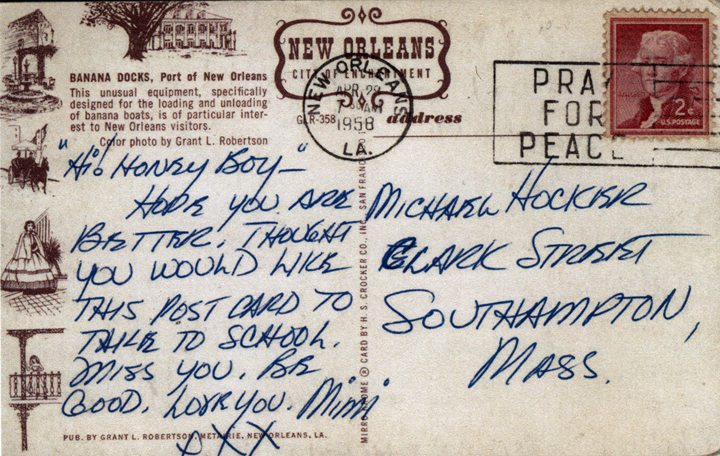 BANANA DOCKS, Port of New Orleans
This unusual equipment, specifically
designed for the loading and unloading
of banana boats, is of particular inter-
est to New Orleans visitors.
Color photo by Grant L. Robertson
NEW ORLEANS
CITY OF ENCHANTMENT
GLR-358
address
NEW ORLEANS
APR 29
1958
LA.
PRAY
FOR
PEACE
2¢
U.S. POSTAGE
"Hi" HONEY BOY—"
HOPE YOU ARE
BETTER. THOUGHT
YOU WOULD LIKE
THIS POST CARD TO
TAKE TO SCHOOL.
MISS YOU. BE
GOOD. LOVE YOU. Mimi
XX
MICHAEL HOCKIER
CLARK STREET
SOUTHAMPTON,
MASS.
CARD BY H. S. CROCKER CO., INC., SAN FRANC
PUB. BY GRANT L. ROBERTSON, METAIRIE, NEW ORLEANS, LA.